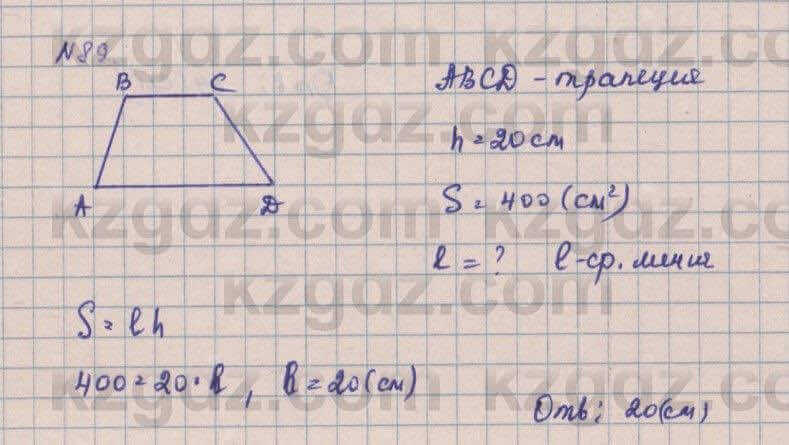 N89
B C
A D
ABCD - трапеция
h = 20 см
S = 400 (см²)
l = ? l - ср. линия
S = l h
400 = 20 · l, l = 20 (см)
Отв: 20 (см)
kzgdz.com
kzgdz.com
kzgdz.com
kzgdz.com
kzgdz.com
kzgdz.com